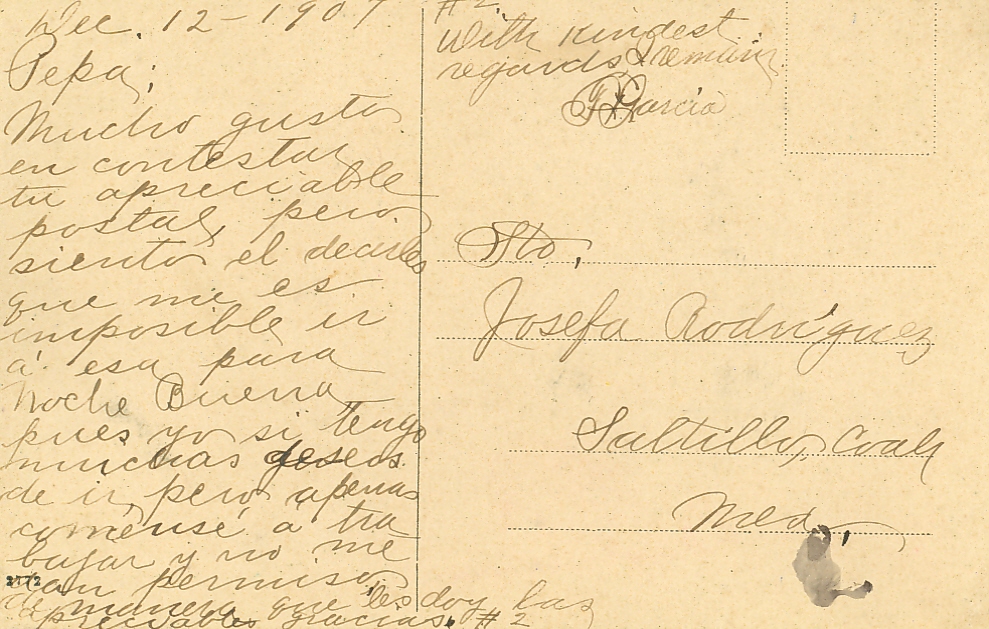 Dec. 12-1907
Pepa;
Mucho gusto
en contestar
tu apreciable
postal, pero
siento el decirles
que me es
imposible ir
á esa para
Noche Buena
pues yo si tengo
muchas deseos
de ir, pero apenas
comensé a tra
bajar y no me
dan permiso
de manera que les doy las
apreciables gracias. #2
#2
With kindest
regards I remain
Garcia
Josefa Rodriguez
Saltillo, Coah
Mex.
2772